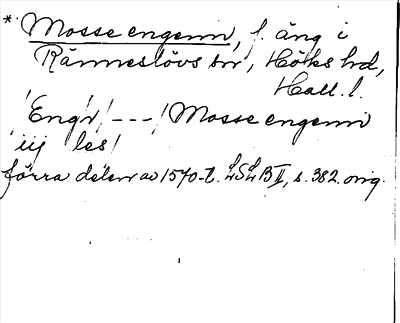 * Mosse engenn, f. äng i
Ränneslövs sn, Höks hd,
Hall. l.
/Engr/ - - - / Mosse engenn
iij les/
förra delen av 1570-t. LSLB II, s. 382. orig.